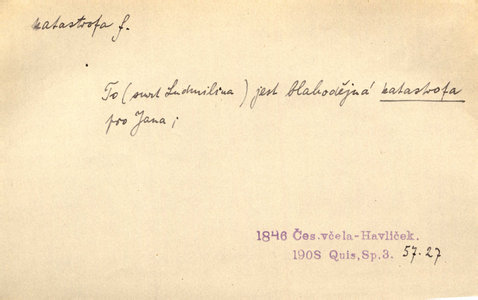 katastrofa f.
To (smrt Ludmilina) jest blahodějná katastrofa
pro Jana;
1846 Čes.včela-Havlíček.
1908 Quis,Sp.3. 57.27